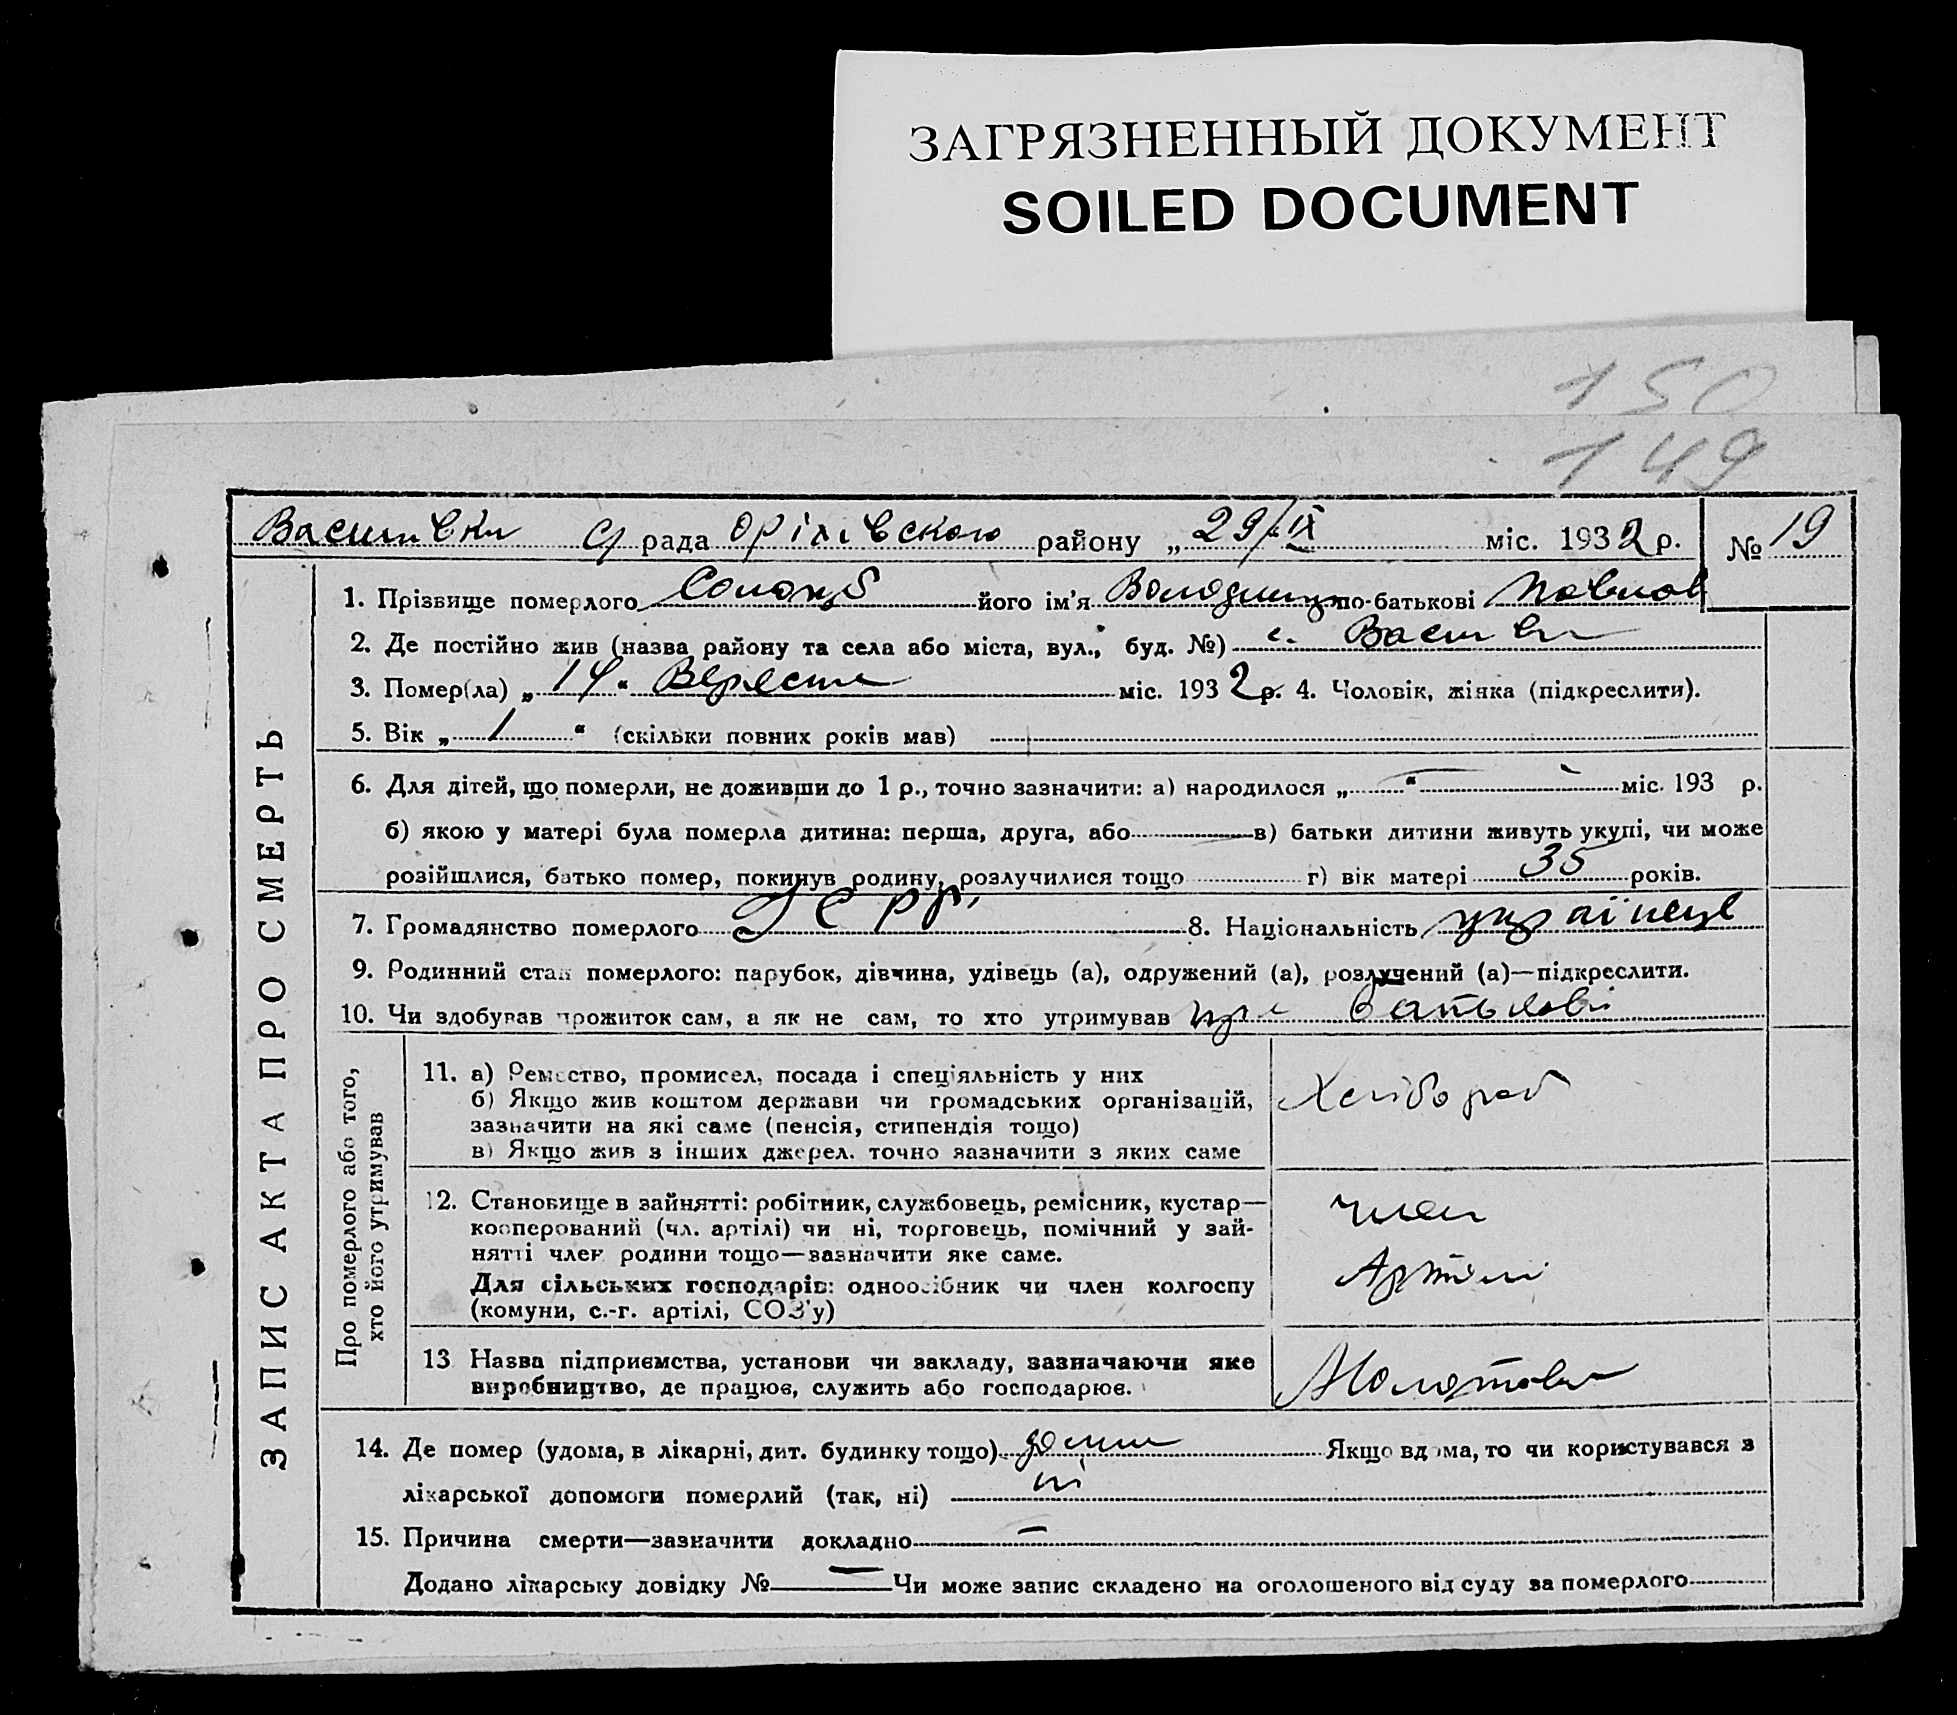 ЗАГРЯЗНЕННЫЙ ДОКУМЕНТ
SOILED DOCUMENT
150
149
Василівки с/ рада Оріхівського району „ 29/IX міс. 1932 р. № 19
1. Прізвище померлого його ім'я Володимир по-батькові Павлов
2. Де постійно жив (назва району та села або міста, вул., буд. №) с. Василівка
3. Помер(ла) „ 14 “ Вересня міс. 1932 р. 4. Чоловік, жінка (підкреслити).
5. Вік „ 1 “ (скільки повних років мав)
6. Для дітей, що померли, не доживши до 1 р., точно зазначити: а) народилося „ “ — міс. 193 р.
б) якою у матері була померла дитина: перша, друга, або в) батьки дитини живуть укупі, чи може
розійшлися, батько помер, покинув родину, розлучилися тощо г) вік матері 35 років.
7. Громадянство померлого УСРР, 8. Національність українець
9. Родинний стан померлого: парубок, дівчина, удівець (а), одружений (а), розлучений (а)—підкреслити.
10. Чи здобував прожиток сам, а як не сам, то хто утримував при батькові
ЗАПИС АКТА ПРО СМЕРТЬ
Про померлого або того,
хто його утримував
11. а) Ремество, промисел, посада і спеціяльність у них
б) Якщо жив коштом держави чи громадських організацій,
зазначити на які саме (пенсія, стипендія тощо)
в) Якщо жив з інших джерел, точно зазначити з яких саме
Хлібороб
12. Становище в зайнятті: робітник, службовець, ремісник, кустар—
кооперований (чл. артілі) чи ні, торговець, помічний у зай-
нятті член родини тощо—зазначити яке саме.
Для сільських господарів: одноосібник чи член колгоспу
(комуни, с.-г. артілі, СОЗ'у)
член
Артілі
13 Назва підприємства, установи чи закладу, зазначаючи яке
виробництво, де працює, служить або господарює.
Молотова
14. Де помер (удома, в лікарні, дит. будинку тощо) дома Якщо вдома, то чи користувався з
лікарської допомоги померлий (так, ні) ні
15. Причина смерти—зазначити докладно —
Додано лікарську довідку № — Чи може запис складено на оголошеного від суду за померлого